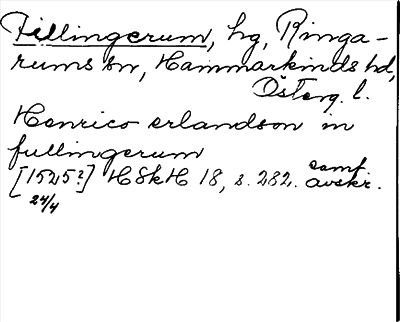 Fillingerum, hg, Ringa-
rums sn, Hammarkinds hd,
Österg. l.
Henrico erlandson in
fullingerum
[1525?] HSkH 18, s. 282. samt. avskr.
24/4